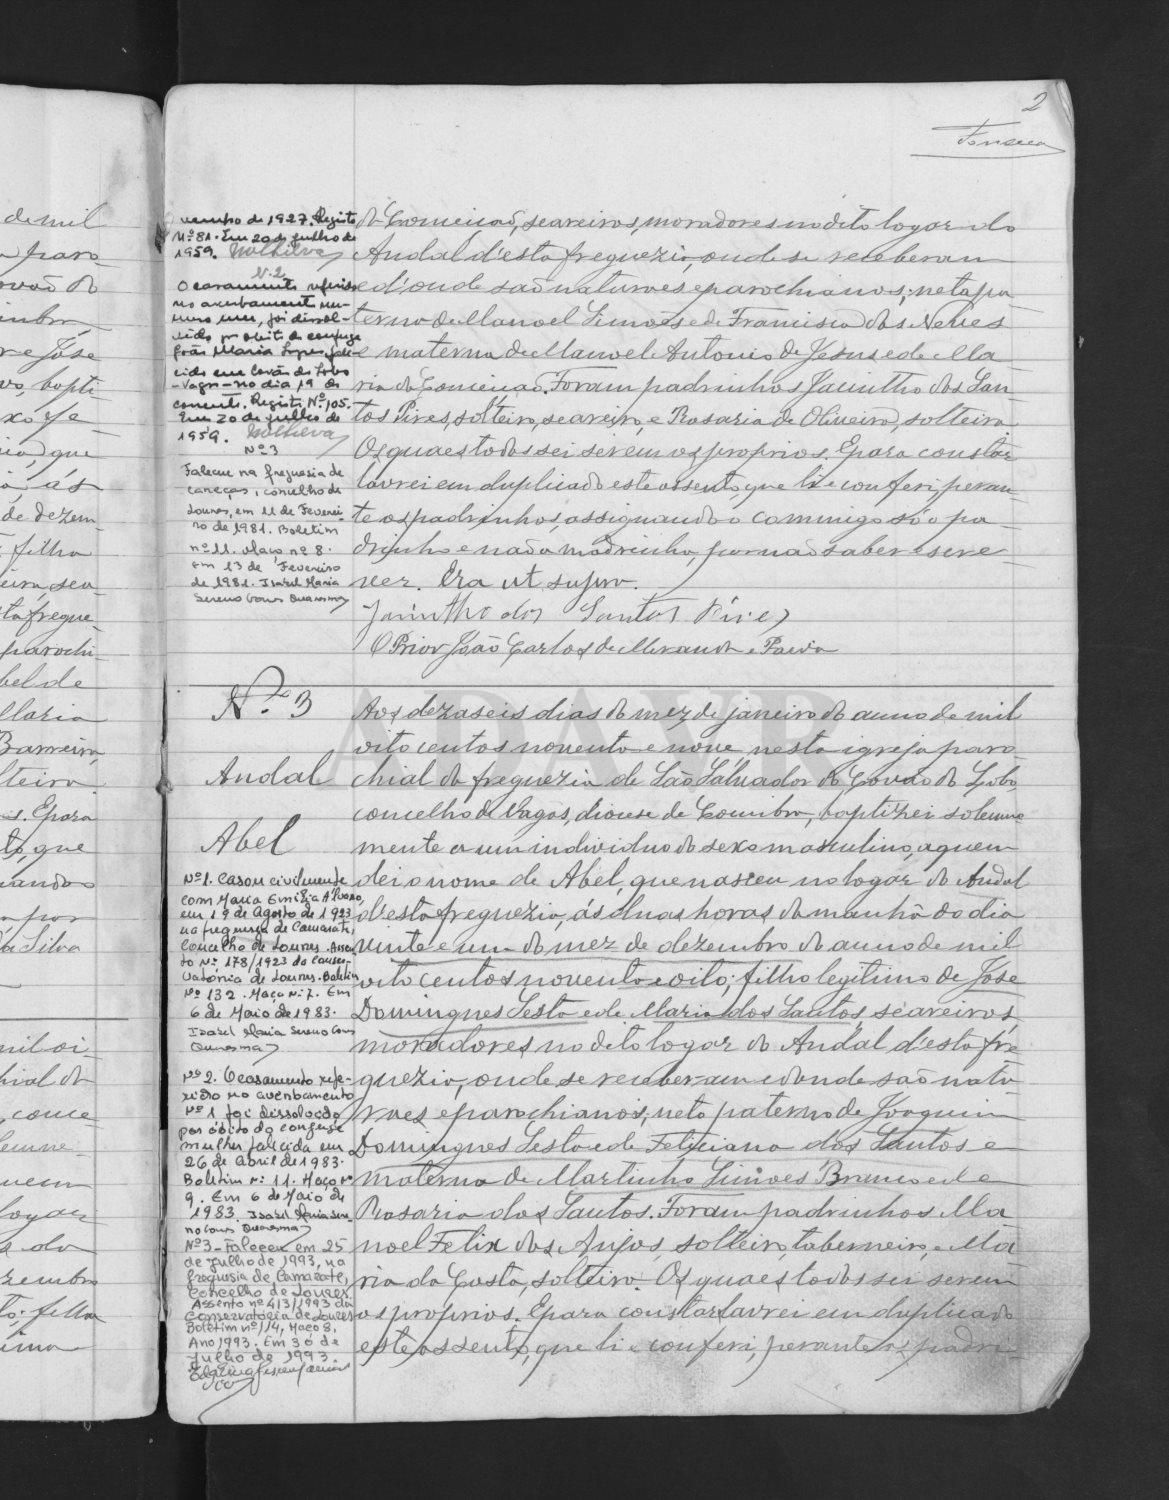 2
Fonseca
vembro de 1927. Registo
Nº 81. Em 20 de julho de
1959.
N. 2
O casamento referido
no averbamento nu-
mero um, foi dissol-
vido por obito do conjuge
João Maria Lopes, fale-
cido em Covão do Lobo
-Vagos- no dia 19 do
corrente. Registo Nº 105.
Em 20 de julho de
1959.
Nº 3
Faleceu na freguesia de
Caneças, concelho de
Loures, em 11 de Feverei-
ro de 1981. Boletim
nº 11. Maço nº 8.
Em 13 de Fevereiro
de 1981. Isabel Maria
Sereno Couras Quaresma
da Conceição, seareiros, moradores no dito logar do
Andal d'esta freguezia, onde se receberam
e d'onde são naturaes e parochianos; neta pa-
terna de Manoel Simões e de Francisca das Neves
e materna de Manoel Antonio de Jesus e de Ma
ria da Conceição. Foram padrinhos Jacintho dos San-
tos Pires, solteiro, seareiro, e Rosaria de Oliveira, solteira
Os quaes todos sei serem os proprios. E para constar
lavrei em duplicado este assento, que li e conferi, peran-
te os padrinhos, assignando o commigo só o pa-
drinho e não a madrinha, por não saber escre
ver. Era ut supra.
Jacintho dos Santos Pires
O Prior João Carlos de Miranda e Paiva
Nº 3
Andal
Abel
Aos dezaseis dias do mez de janeiro do anno de mil
oito centos noventa e nove, nesta igreja paro
chial da freguezia de São Salvador do Covão do Lobo,
concelho de Vagos, diocese de Coimbra, baptizei solemne
mente a um individuo do sexo masculino, a quem
dei o nome de Abel, que nasceu no logar do Andal
d'esta freguezia, ás duas horas da manhã do dia
vinte e um do mez de dezembro do anno de mil
oito centos noventa e oito; filho legitimo de José
Domingues Sesta e de Maria dos Santos, seareiros,
moradores no dito logar do Andal d'esta fre
guezia, onde se receberam e donde são natu
raes e parochianos; neto paterno de Joaquim
Domingues Sesta e de Feliciana dos Santos e
materno de Martinho Simões Branco e de
Rosaria dos Santos. Foram padrinhos Ma
noel Felix dos Anjos, solteiro, taberneiro, e Ma
ria da Costa, solteira. Os quaes todos sei serem
os proprios. E para constar lavrei em duplicado
este assento, que li e conferi, perante os padri-
Nº 1. Casou civilmente
com Maria Emilia Alvaro,
em 19 de Agosto de 1923
na freguesia de Camarate,
Concelho de Loures. Assen-
to Nº 178/1923 da Conser-
vatória de Loures. Boletim
Nº 132. Maço nº 7. Em
6 de Maio de 1983.
Isabel Maria Sereno Couras
Quaresma
Nº 2. O casamento refe-
rido no averbamento
Nº 1 foi dissolvido
por óbito da conjuge
mulher falecida em
26 de Abril de 1983.
Boletim nº 11. Maço nº
9. Em 6 de Maio de
1983. Isabel Maria Sere-
no Couras Quaresma
Nº 3 - Faleceu em 25
de julho de 1993, na
freguesia de Camarate,
Concelho de Loures.
Assento nº 413/1993 da
Conservatória de Loures
Boletim nº 114, Maço 8,
Ano 1993. Em 30 de
Julho de 1993.
ADAVR
de mil
José
bapti
que
ás
de dezem-
filha
sea-
ta fregue-
parochi-
bel de
Maria
Barreira,
lteira
s. E para
to, que
nando o
por
da Silva
mil oi-
chial do
, conce-
lemne-
uem
logar
s da
zembro
to; filha